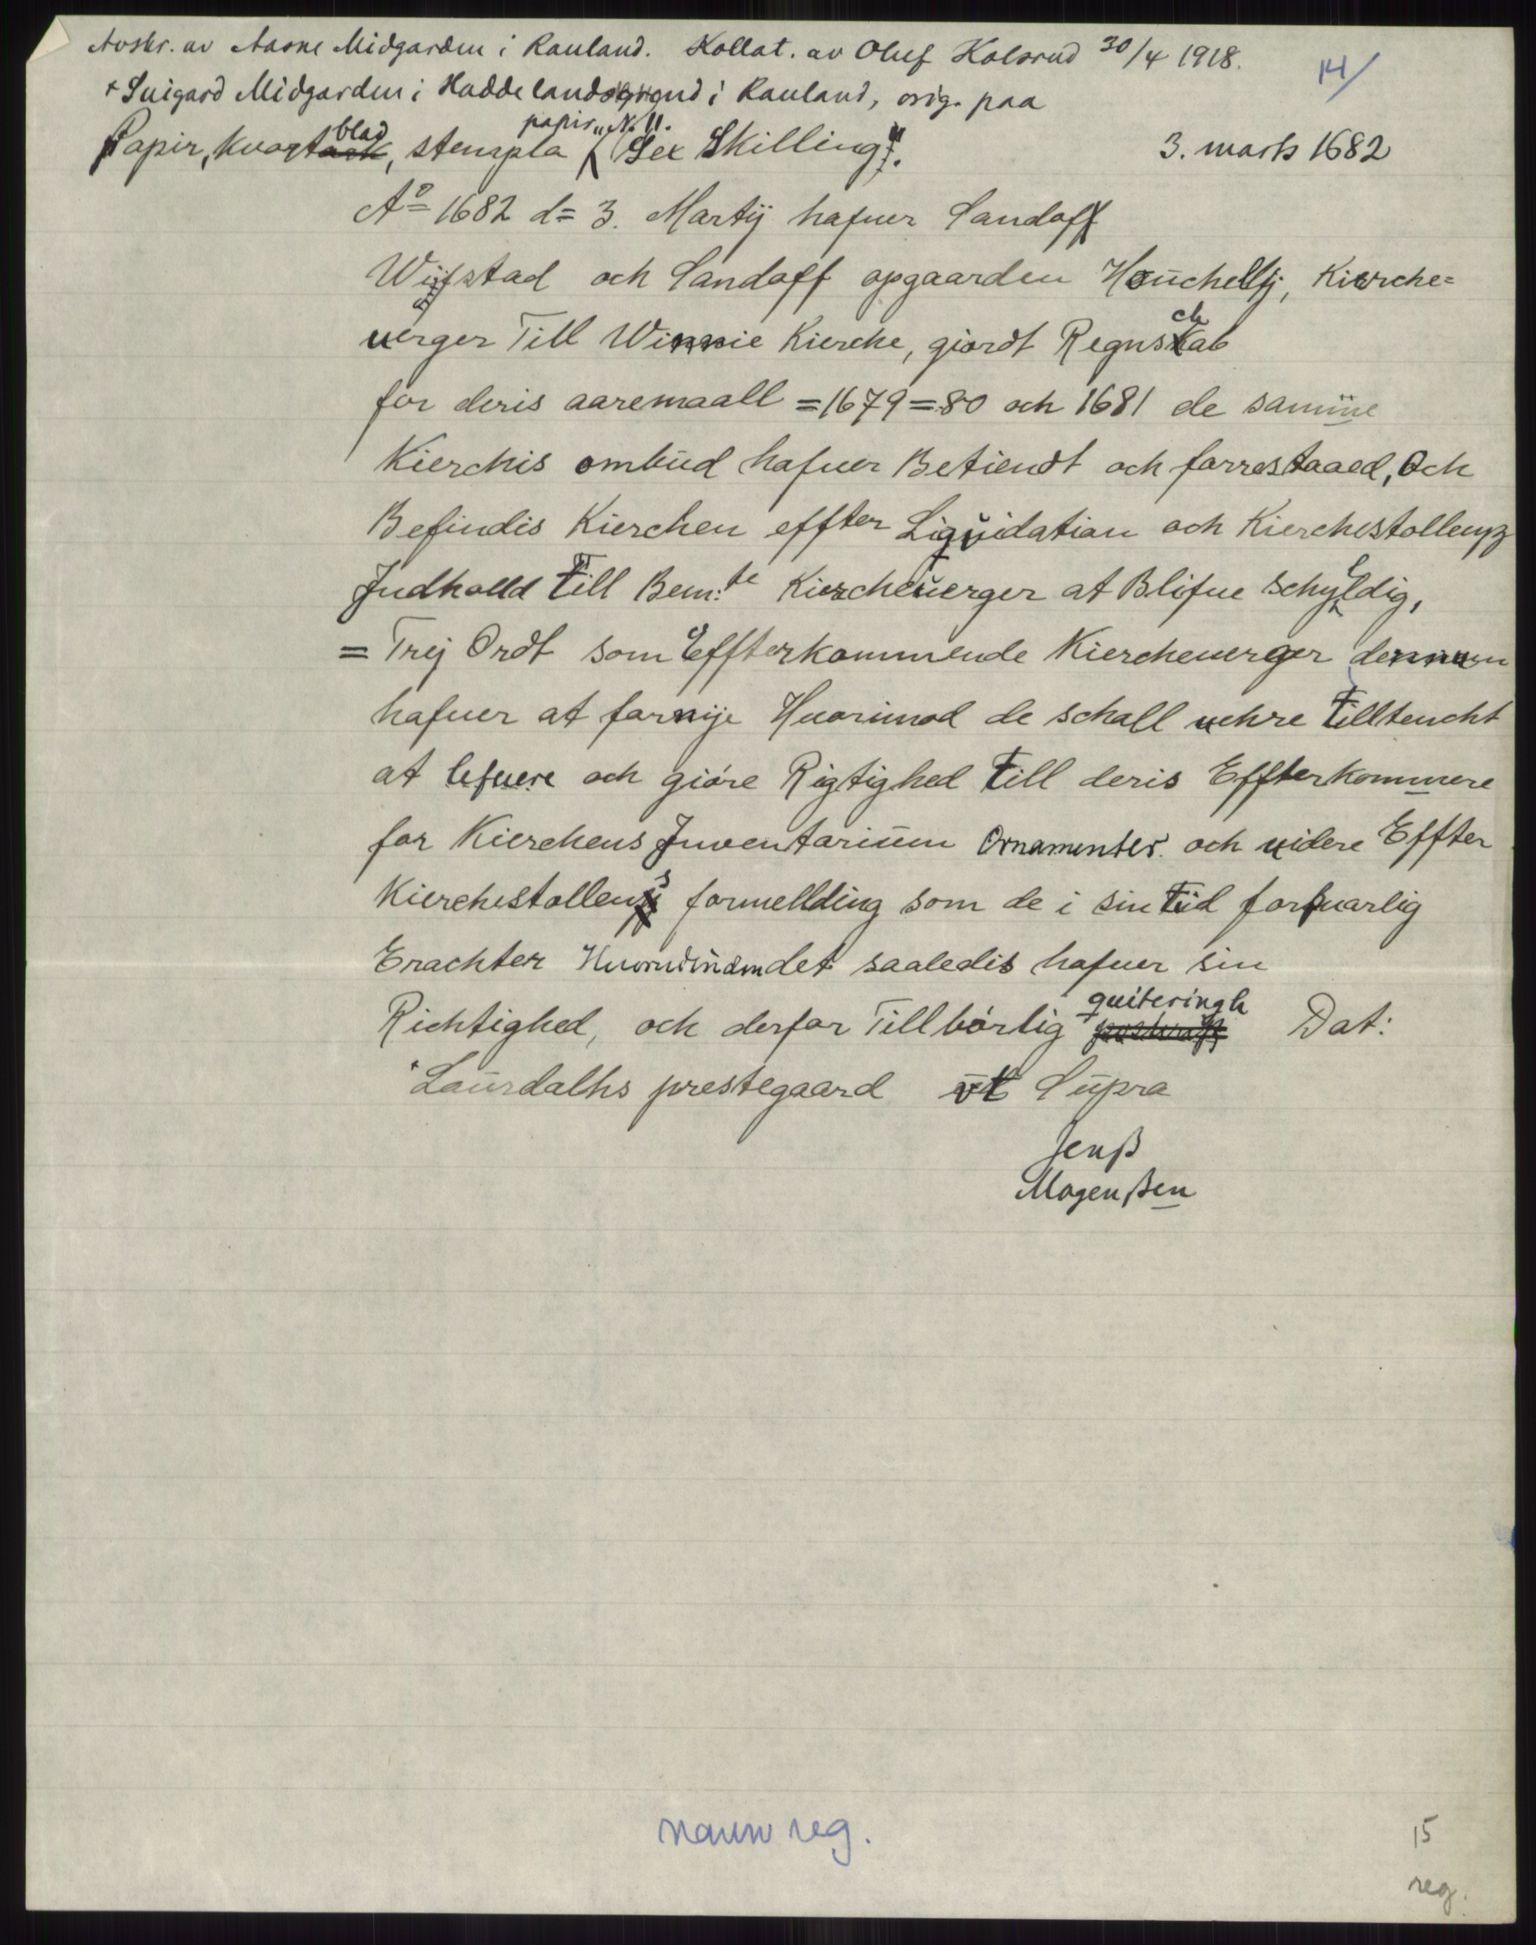 Avskr. av Aasne Midgarden i Rauland. Kollat. av Oluf Kolsrud 30/4 1918.
14/
+ Snigard Midgarden i Haddelandsgrend i Rauland, orig. paa
Papir, kvartark blad, stempla papir „N. 11. Sex Skilling".
3. marts 1682
A° 1682 d= 3. Martÿ hafuer Sandoff
Wÿstad och Sandoff opgaarden Houchellj, Kierche=
uerger Till Winnie Kierche, giordt Regnschab
for deris aaremaall =1679=80 och 1681 de samme
Kierchis ombud hafuer Betiendt och forrestaaed, Och
Befindis Kierchen effter Liqvidation och Kierchestollenz
Jndholld Till Bem:te Kiercheuerger at Blifue schyldig,
= Trej Ordt som Effterkommende Kiercheuerger dennem
hafuer at fornije Huorimod de schall uehre Tilltencht
at lefuere och giöre Rigtighed Till deris Effterkommere
for Kierchens Jnventarium Ornamenter och uidere Effter
Kierchestollens formellding som de i sin Tid forsuarlig
Erachter det saaledis hafuer sin
Richtighed, och derfor Tillbörlig quiteringh Dat:
Laurdalhs prestegaard vt Supra
Jenß
Mogenßen
navn reg.
15
reg.